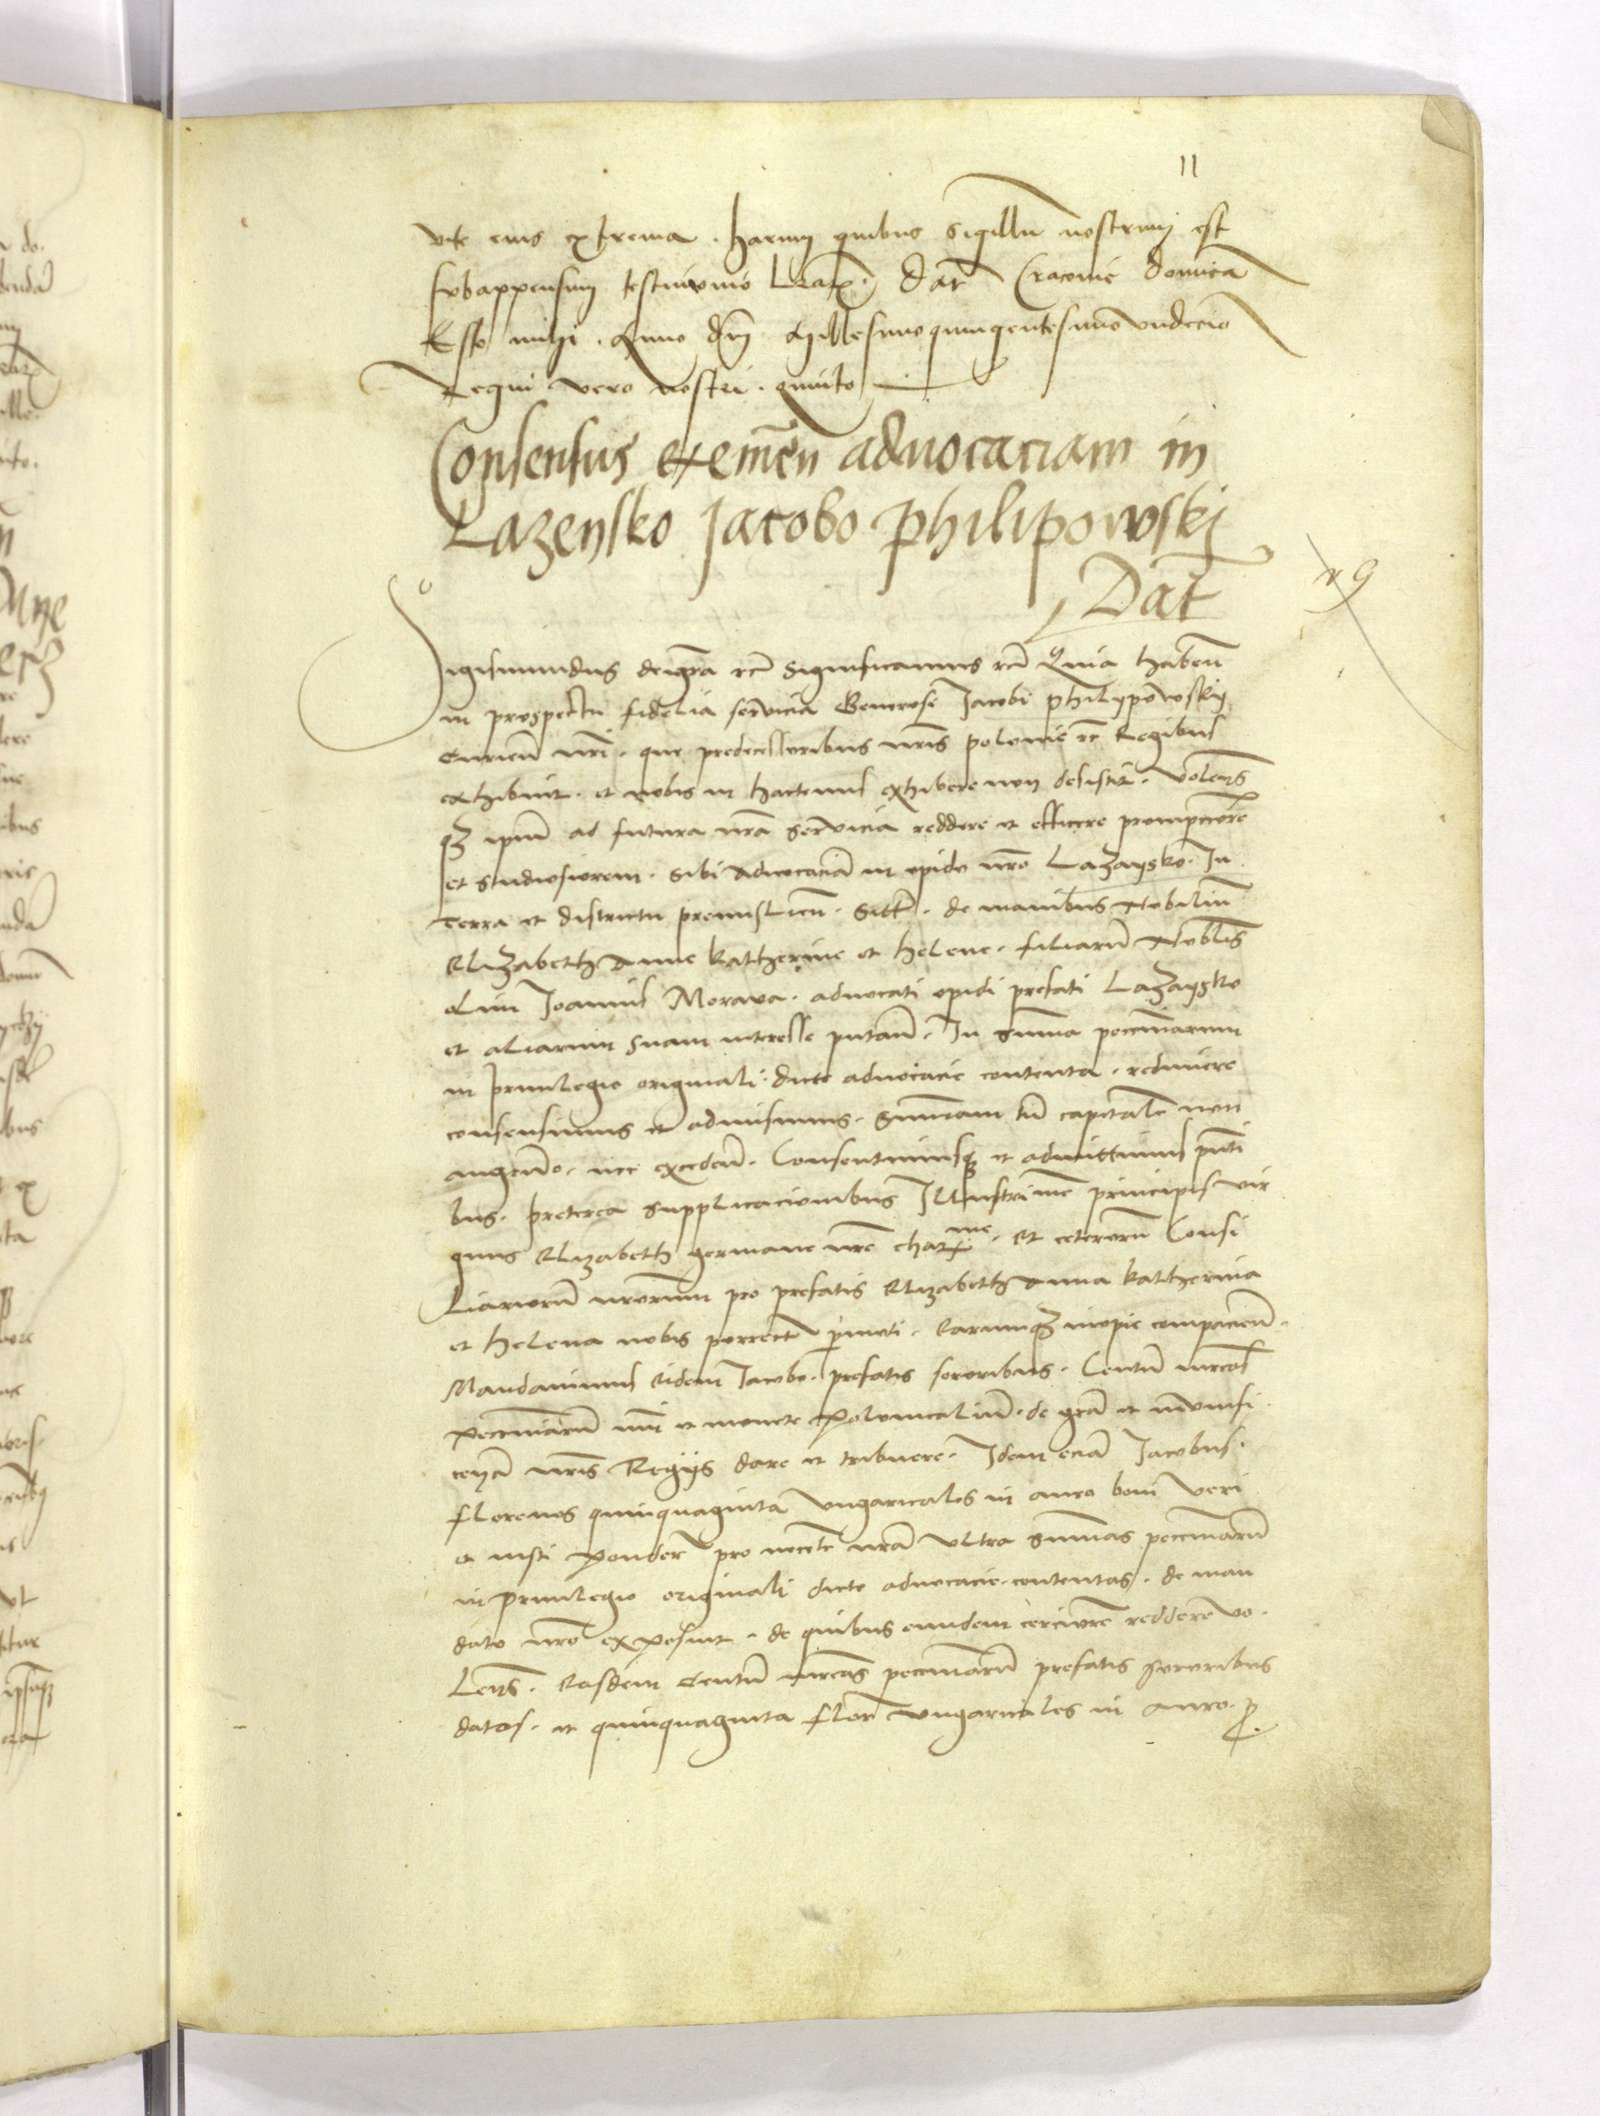 11
vite eius extrema. harum quibus sigillu nostrum est
subappensum testimonio lrarꝝ. Dat Cracovie domica
Esto mihi. Anno dni Millesimoquingentesimo undecio
Regni vero nostri. quinto
Consensus exemen advocaciam in
Lazensko Jacobo philipowskj
Dat
Sigismundus dei gra etc Significamus etc Quia haben
in prospectu fidelia servicia Generosi Jacobi philypowskij
curien nri. que predecessoribus nris polonie etc Regibus
exhibuit. et nobis in hactenus exhibere non desistit. Volens
qꝫ ipm ad futura nra servicia reddere et efficere prompciore
et studiosiorem. Sibi advocacia in opido nro Lazaysko. In
Terra et districtu premislien. Sitt. de manibus Nobiliu
Elizabeth Anne Katherine et helene. filiaru Nobilis
olim Joannis Morava. advocati opidi prefati Lazaysko
et aliarum suam interesse putan. In summa pecuniarum
in privilegio originali. dicte advocacie contenta. redimere
consensimus et admisimus. Summam tn capitale non
augendo. nec exceden. Consentimusqꝫ et admittimus pnti
bus. preterea supplicacionibus Illustrime principis vir
ginis Elizabeth germane nre charme. et ceteroru Consi
liarioru nrorum pro prefatis Elizabeth Anna Katherina
et helena nobis porrect pmoti. Earumqꝫ inopie compacien.
Mandavimus eidem Jacobo. prefatis sororibus. Centu mrcas
pecuniaru nui et monete Polonicaliu. de gra et munifi
cencia nris Regiis dare et tribuere. Idem ecia Jacobus.
florenos quinquaginta Ungaricales in auro boni veri
et iusti Ponder pro necte nra ultra summas pecuniaru
in privilegio originali dicte advocacie. contentas. de man
dato nro exposuit. de quibus eundem cerciore reddere vo.
lens. Easdem centu mrcas pecuniaru prefatis sororibus
datas. et quinquaginta flor Ungaricales in auro. p.